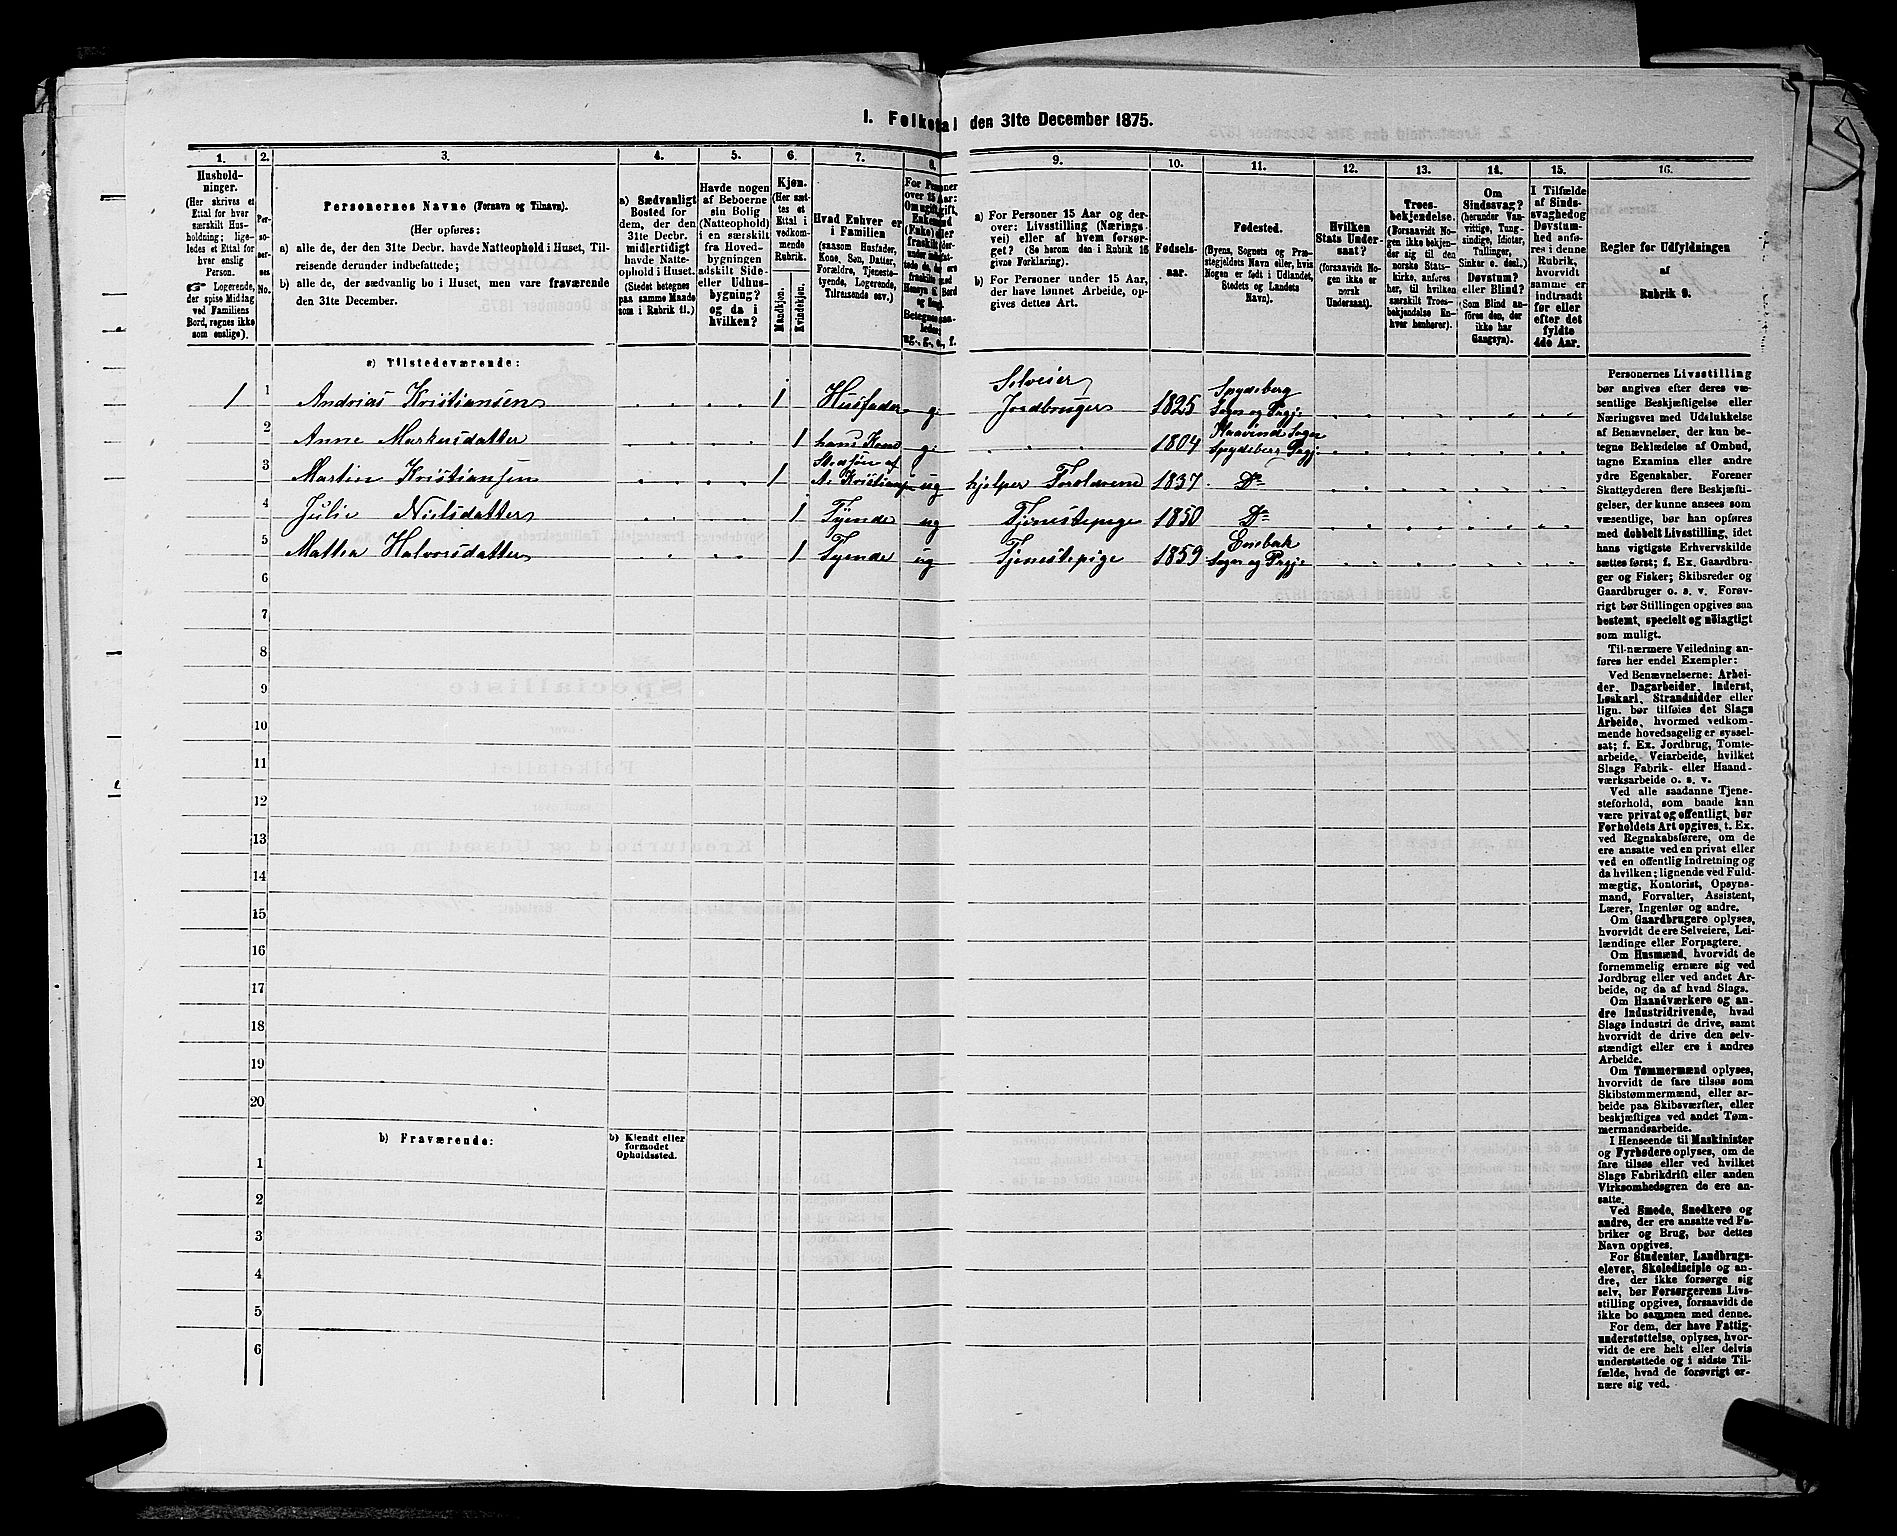 1. Folketal den 31te December 1875.
1. 2. 3. 4. 5. 6. 7. 8. 9. 10. 11. 12. 13. 14. 15. 16.
Hushold-
ninger.
(Her skrives et
Ettal for hver
særskilt Hus-
holdning; lige-
ledes et Ettal for
hver enslig
Person.
☞ Logerende,
der spise Middag
ved Familiens
Bord, regnes ikke
som enslige).
Per-
so-
ner-
nes
No.
Personernes Navne (Fornavn og Tilnavn).
(Her opføres:
a) alle de, der den 31te Decbr. havde Natteophold i Huset, Til-
reisende derunder indbefattede;
b) alle de, der sædvanlig bo i Huset, men vare fraværende
den 31te December.
a) Sædvanligt
Bosted for
dem, der den
31te Decbr.
midlertidigt
havde Natte-
ophold i Huset.
(Stedet betegnes
paa samme Maade
som i Rubrik 11.)
Havde nogen
af Beboerne
sin Bolig
(Natteophold)
i en særskilt
fra Hoved-
bygningen
adskilt Side-
eller Udhus-
bygning?
og da i
hvilken?
Kjøn.
(Her sæt-
tes et
Ettal i
vedkom-
mende
Rubrik.
Mandkjøn.
Kvindekjøn.
Hvad Enhver er
i Familien
(saasom Husfader,
Kone, Søn, Datter,
Forældre, Tjeneste-
tyende, Logerende,
Tilreisende osv.)
For Personer
over 15 Aar:
Om ugift, gift,
Enkemand
(Enke) eller
fraskilt
Betegnes saa-
ledes:
ug., g., e., f.
a) For Personer 15 Aar og der-
over: Livsstilling (Nærings
vei) eller af hvem forsør-
get? (Se herom den i Rubrik 16
givne Forklaring).
b) For Personer under 15 Aar,
der have lønnet Arbeide, op-
gives dettes Art.
Fødsels-
aar.
Fødested.
(Byens, Sognets og Præ-
stegjeldets Navn eller, hvis
Nogen er født i Udlandet,
Stedets og Landets
Navn).
Hvilken
Stats Under-
saat?
(forsaavidt No-
gen ikke er
norsk
Undersaat).
Troes-
bekjendelse.
(Forsaavidt No-
gen ikke bekjen-
der sig til den
norske Stats-
kirke, anføres
her, til hvilken
særskilt Troes-
bekjendelse En-
hver henhører).
Om
Sindssvag?
(herunder Van-
vittige, Tung-
sindige, Idioter,
Tullinger,
Sinker o. desl.)
Døvstum?
eller Blind?
(Som Blind an-
føres den, der
ikke har
Gangsyn).
I Tilfælde
af Sinds-
svaghed og
Døvstum-
hed anfø-
res i denne
Rubrik,
hvorvidt
samme er
indtraadt
før eller
efter det
fyldte
4de Aar.
Regler for Udfyldningen
af
Rubrik 9.
a) Tilstedeværende:
1 1 Andrias Kristiansen 1 Husfader g. Selveier Jordbruger 1825 Spydeberg Sogn og Prgj.
2 Anne Markusdatter 1 hans Kone g. 1804 Haavind Sogn Spydeberg Prgj.
3 Martin Kristiansen 1 Stedsøn af A. Kristians. ug hjelper Forældrene 1837 Do
4 Julie Nielsdatter 1 Tyende ug Tjenestepige 1850 Do
5 Mathea Halvorsdatter 1 Tyende ug Tjenestepige 1859 Enebak Sogn og Prgj.
6
7
8
9
10
11
12
13
14
15
16
17
18
19
20
b) Fraværende:
b) Kjendt eller
formodet
Opholdssted.
1
2
3
4
5
6
Personernes Livsstilling
bør angives efter deres væ-
sentlige Beskjæftigelse eller
Næringsvei med Udelukkelse
af Benævnelser, der kun be-
tegne Beklædelse af Ombud,
tagne Examina eller andre
ydre Egenskaber. Forener
Skatteyderen flere Beskjæfti-
gelser, der kunne ansees som
væsentlige, bør han opføres
med dobbelt Livsstilling, idet
hans vigtigste Erhvervskilde
sættes først; f. Ex. Gaardbru-
ger og Fisker; Skibsreder og
Gaardbruger o. s. v. Forøv-
rigt bør Stillingen opgives saa
bestemt, specielt og nøiagtigt
som muligt.
Til nærmere Veiledning an-
føres her endel Exempler:
Ved Benævnelserne: Arbei-
der, Dagarbeider, Inderst,
Løskarl, Strandsidder eller
lign. bør tilføies det Slags
Arbeide, hvormed vedkom-
mende hovedsagelig er syssel-
sat; f. Ex. Jordbrug, Tomte-
arbeide, Veiarbeide, hvilket
Slags Fabrik- eller Haand-
værksarbeide o. s. v.
Ved alle saadanne Tjene-
steforhold, som baade kan
være privat og offentligt, bør
Forholdets Art opgives, t. Ex.
ved Regnskabsførere, om de
ere ansatte ved en privat eller
ved en offentlig Indretning og
da hvilken; lignende ved Fuld-
mægtig, Kontorist, Opsyns-
mand, Forvalter, Assistent,
Lærer, Ingeniør og andre.
Om Gaardbrugere oplyses,
hvorvidt de ere Selveiere, Lei-
lændinge eller Forpagtere.
Om Husmænd, hvorvidt de
fornemmelig ernære sig ved
Jordbrug eller ved andet Ar-
beide, og da af hvad Slags.
Om Haandværkere og an-
dre Industridrivende, hvad
Slags Industri de drive, samt
hvorvidt de drive den selv-
stændigt eller ere i andres
Arbeide.
Om Tømmermænd oplyses,
hvorvidt de fare tilsøs som
Skibstømmermænd, eller ar-
beide paa Skibsværfter, eller
beskjæftiges ved andet Tøm-
mermandsarbeide.
I Henseende til Maskinister
og Fyrbødere oplyses, om de
fare tilsøs eller ved hvilket
Slags Fabrikdrift eller anden
Virksomhedsgren de ere an-
satte.
Ved Smede, Snedkere og
andre, der ere ansatte ved Fa-
briker og Brug, bør dettes
Navn opgives.
For Studenter, Landbrugs-
elever, Skoledisciple og an-
dre, der ikke forsørge sig
selv, bør Forsørgerens Livs-
stilling opgives, forsaavidt de
ikke bo sammen med denne.
For dem, der have Fattig-
understøttelse, oplyses, hvor-
vidt de ere helt eller delvis
understøttede og i sidste Til-
fælde, hvad de forøvrigt er-
nære sig ved.